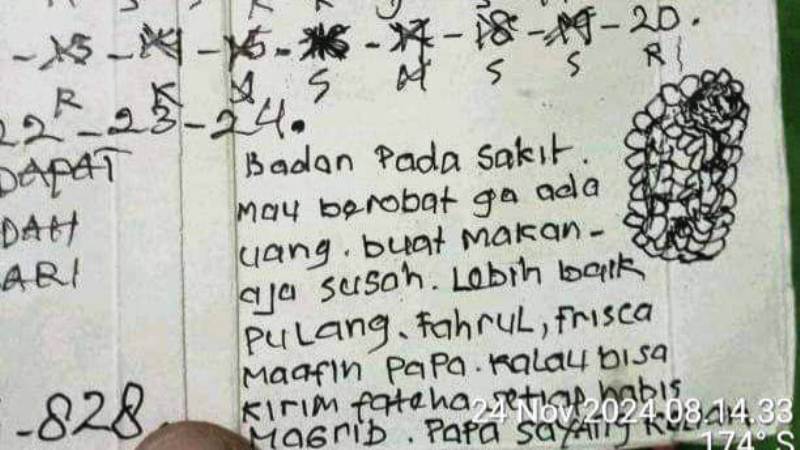 - 15 - 14 - 15 - 16 - 17 - 18 - 19 - 20.
R K M S M S S R
22 - 23 - 24.
DAPAT
DAH
ARI
Badan Pada sakit.
mau berobat ga ada
uang. buat makan-
aja susah. Lebih baik
PULANG. Fahrul, Frisca
Maafin PaPa. Kalau bisa
Kirim fateha setiap habis
MAGRIB. PaPa sayang
- 828
24 Nov 2024 08.14.33
174° S